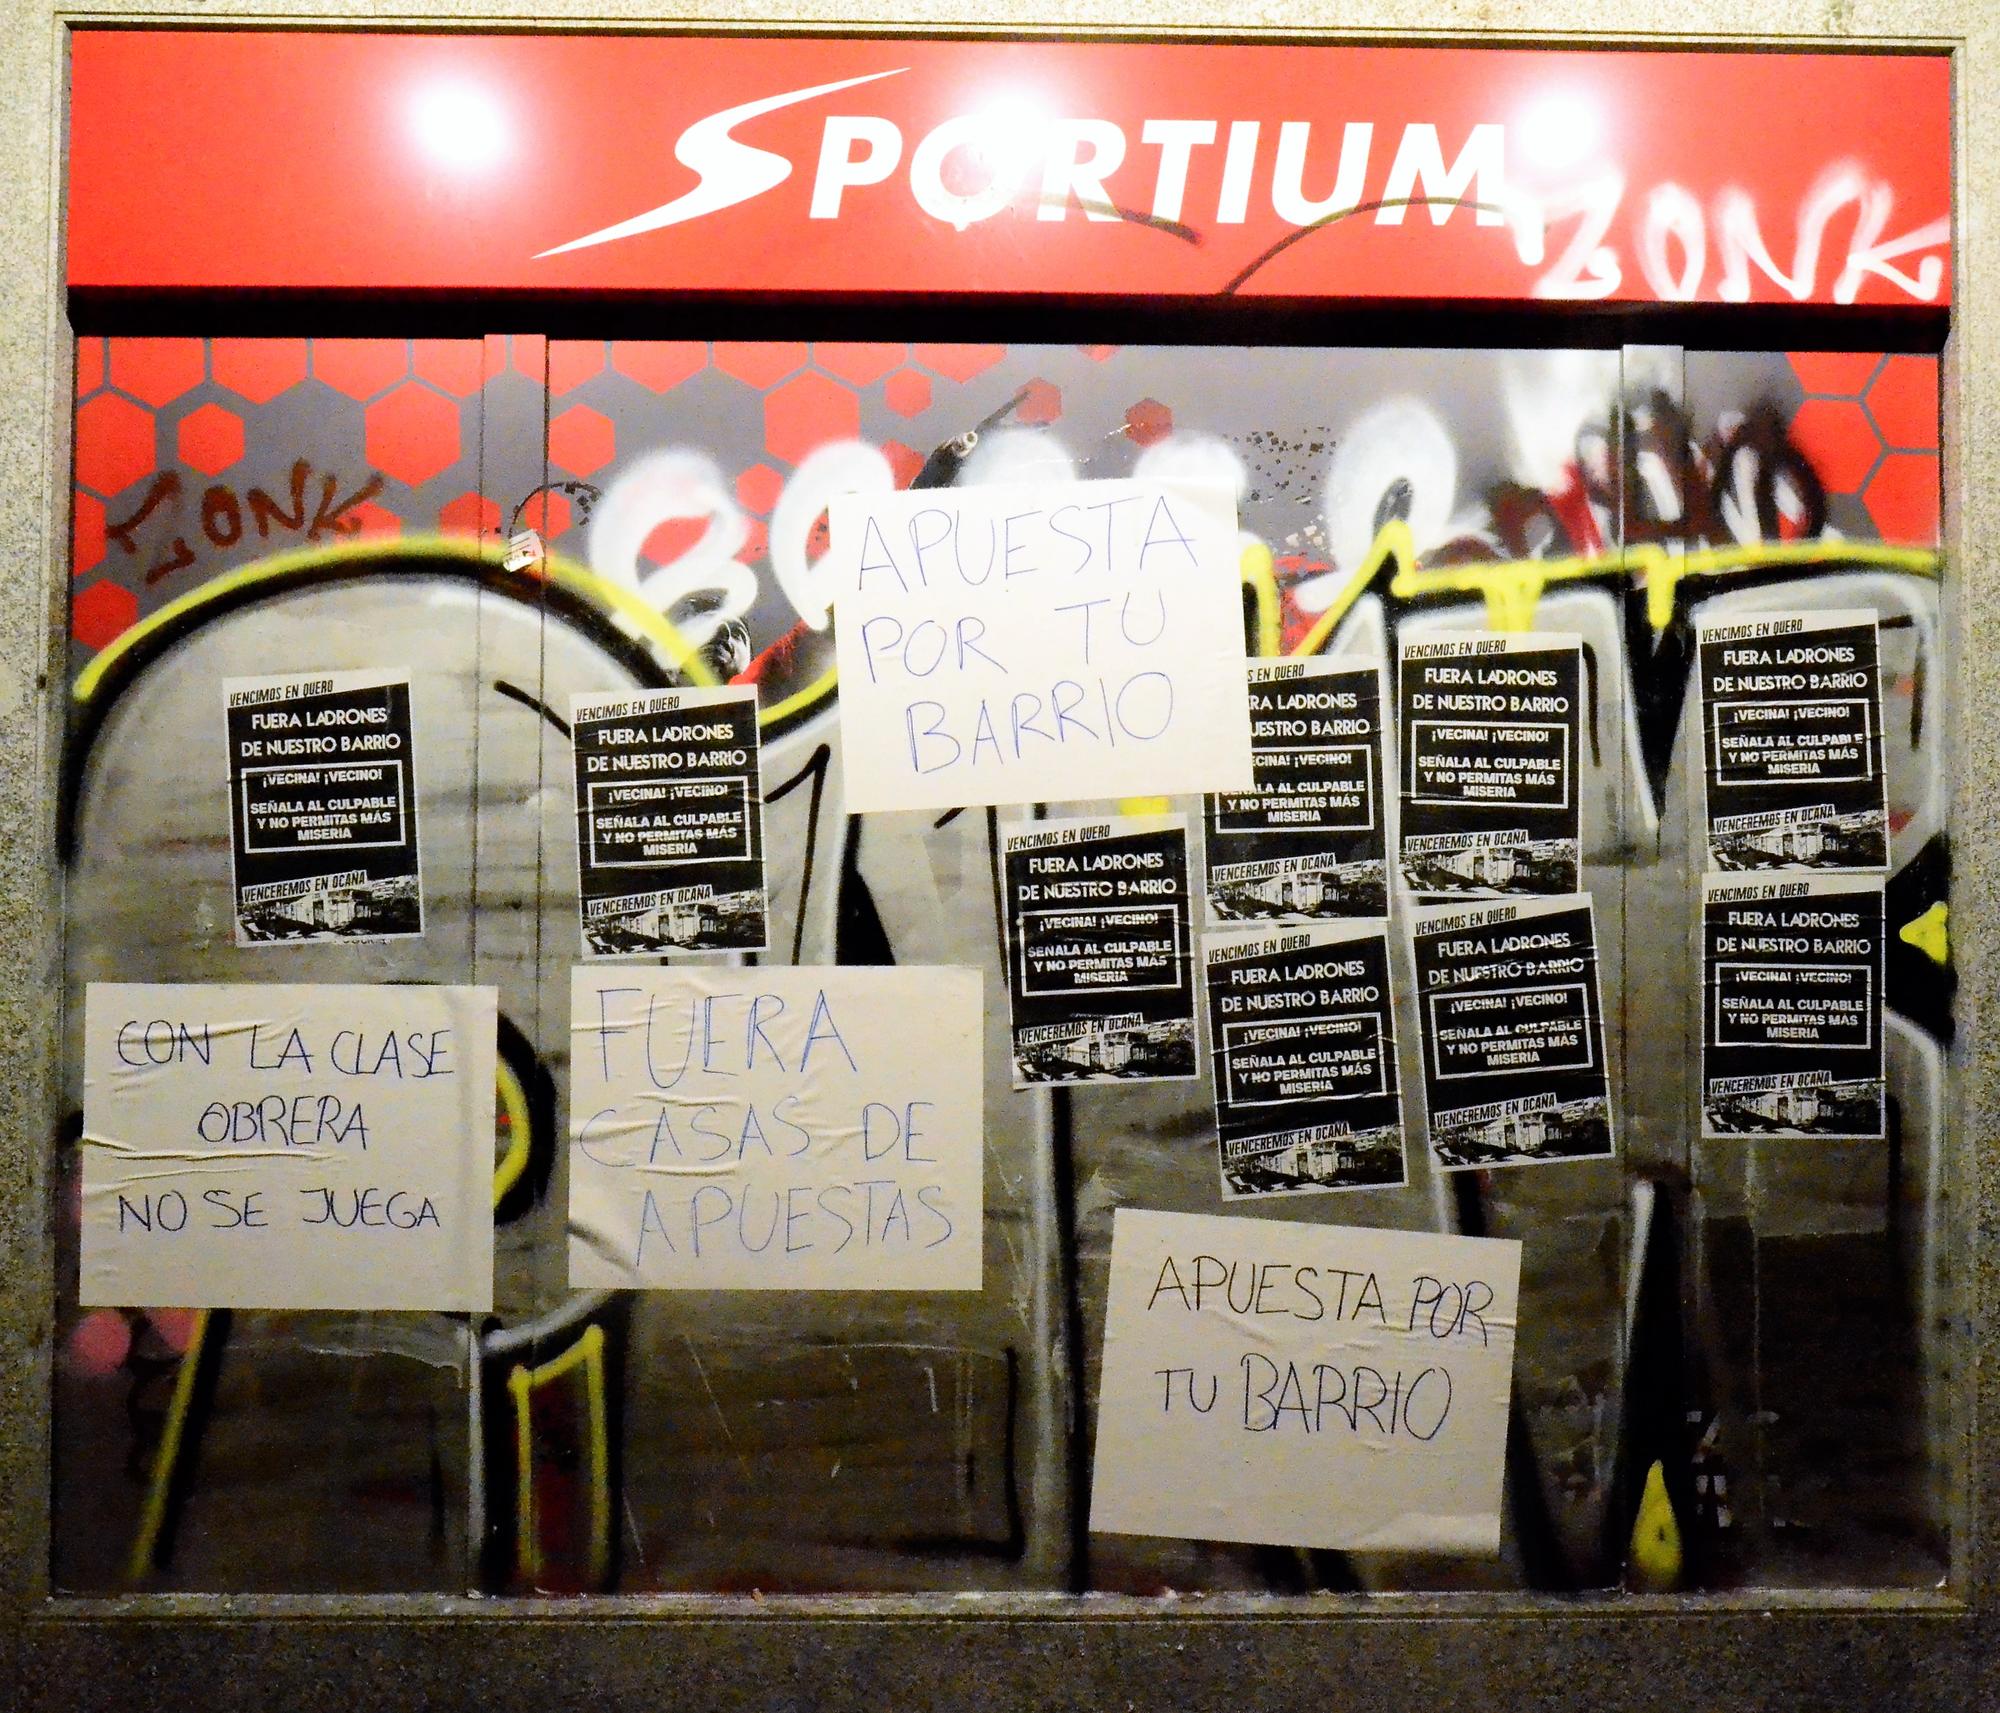 SPORTIUM
ZONK
ZONK
APUESTA
POR TU
BARRIO
VENCIMOS EN QUERO
FUERA LADRONES
DE NUESTRO BARRIO
¡VECINA! ¡VECINO!
SEÑALA AL CULPABLE
Y NO PERMITAS MÁS
MISERIA
VENCEREMOS EN OCAÑA
VENCIMOS EN QUERO
FUERA LADRONES
DE NUESTRO BARRIO
¡VECINA! ¡VECINO!
SEÑALA AL CULPABLE
Y NO PERMITAS MÁS
MISERIA
VENCEREMOS EN OCAÑA
EN QUERO
LADRONES
BARRIO
¡VECINO!
SEÑALA AL CULPABLE
Y NO PERMITAS MÁS
MISERIA
VENCEREMOS EN OCAÑA
VENCIMOS EN QUERO
FUERA LADRONES
DE NUESTRO BARRIO
¡VECINA! ¡VECINO!
SEÑALA AL CULPABLE
Y NO PERMITAS MÁS
MISERIA
VENCEREMOS EN OCAÑA
VENCIMOS EN QUERO
FUERA LADRONES
DE NUESTRO BARRIO
¡VECINA! ¡VECINO!
SEÑALA AL CULPABLE
Y NO PERMITAS MÁS
MISERIA
VENCEREMOS EN OCAÑA
VENCIMOS EN QUERO
FUERA LADRONES
DE NUESTRO BARRIO
¡VECINA! ¡VECINO!
SEÑALA AL CULPABLE
Y NO PERMITAS MÁS
MISERIA
VENCEREMOS EN OCAÑA
VENCIMOS EN QUERO
FUERA LADRONES
DE NUESTRO BARRIO
¡VECINA! ¡VECINO!
SEÑALA AL CULPABLE
Y NO PERMITAS MÁS
MISERIA
VENCEREMOS EN OCAÑA
VENCIMOS EN QUERO
FUERA LADRONES
DE NUESTRO BARRIO
¡VECINA! ¡VECINO!
SEÑALA AL CULPABLE
Y NO PERMITAS MÁS
MISERIA
VENCEREMOS EN OCAÑA
VENCIMOS EN QUERO
FUERA LADRONES
DE NUESTRO BARRIO
¡VECINA! ¡VECINO!
SEÑALA AL CULPABLE
Y NO PERMITAS MÁS
MISERIA
VENCEREMOS EN OCAÑA
CON LA CLASE
OBRERA
NO SE JUEGA
FUERA
CASAS DE
APUESTAS
APUESTA POR
TU BARRIO